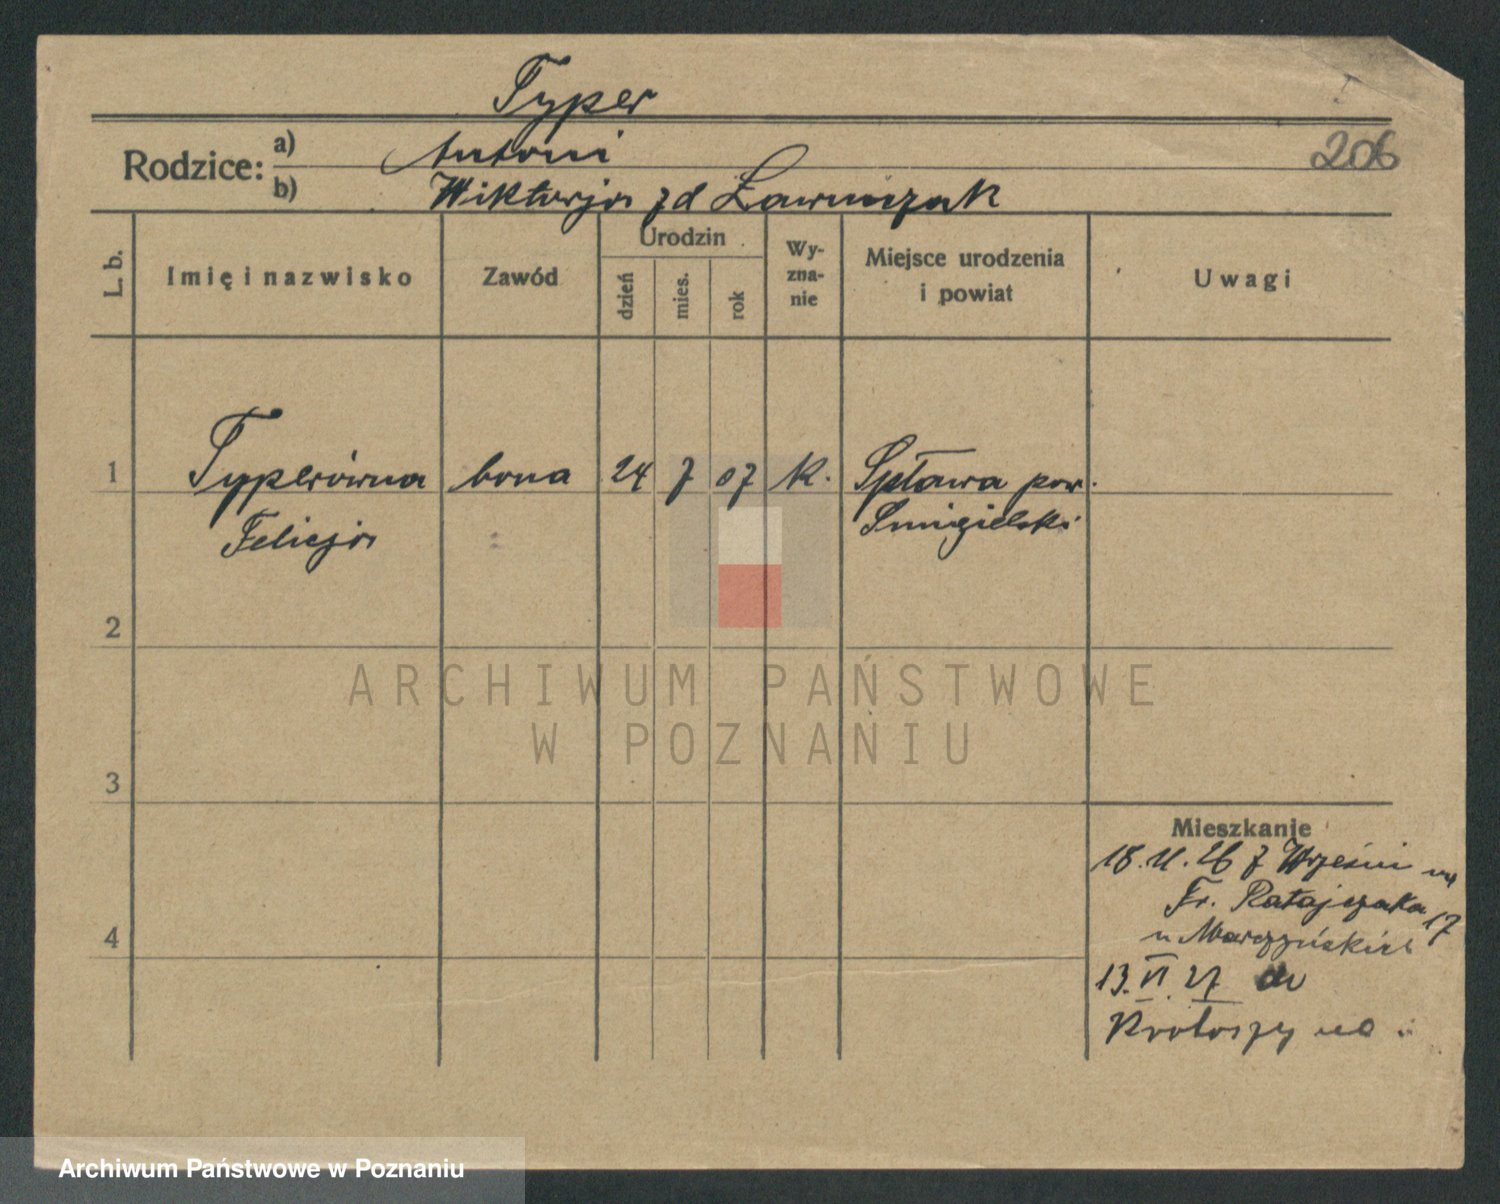 Typer
206
Rodzice: a) Antoni
b) Wiktorja zd Ławniczak
L. b.
Imię i nazwisko
Zawód
Urodzin
dzień
mies.
rok
Wy-
zna-
nie
Miejsce urodzenia
i powiat
Uwagi
1 Typerówna bona 24 7 07 k. Spława pow.
Felicja Śmigielski
2
3
4
ARCHIWUM PAŃSTWOWE
W POZNANIU
Mieszkanie
18.11.26 z Wrześni
Fr. Ratajczaka 17
u Marszyńskich
13.VI.27 do
Krotoszyna
Archiwum Państwowe w Poznaniu